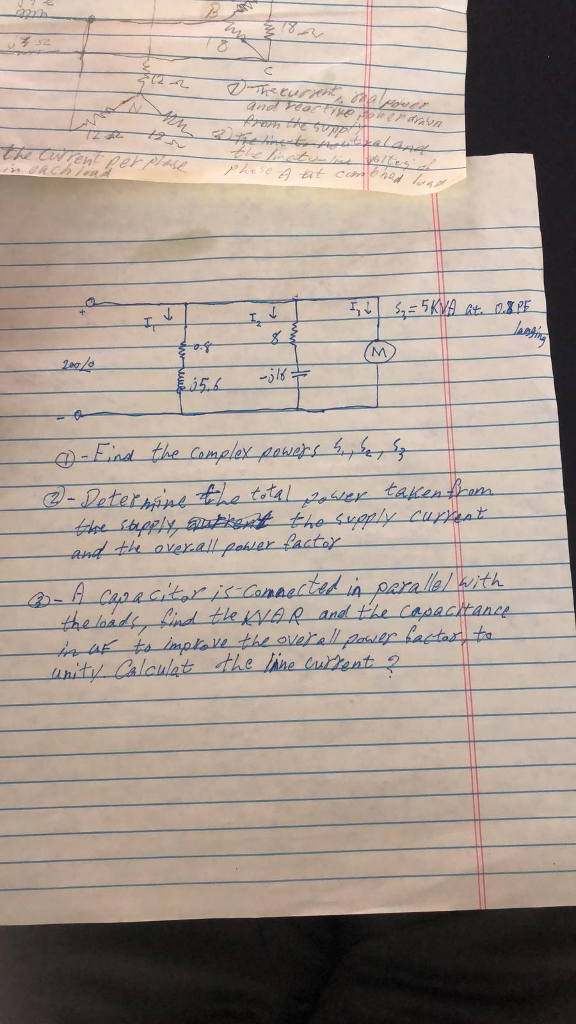 B
18
18 Ω
C
12 Ω
N
12 Ω
12 Ω
1)-The current, real power
and reactive power drawn
from the supply
2) The line to neutral and
the line to line voltag of
phase A at combined load
the current per phase
in each load
+
I₁ ↓
I₂ ↓
I₃ ↓
S₃ = 5KVA at. 0.8 PF
lagging
200/0
0.8
j5.6
8
-j16
M
-
①-Find the complex powers S₁, S₂, S₃
②-Determine the total power taken from
the supply, the supply current
and the over.all power factor
③-A capacitor is connected in parallel with
the loads, find the KVAR and the capacitance
in uF to improve the overall power factor, to
unity. Calculat the line current ?